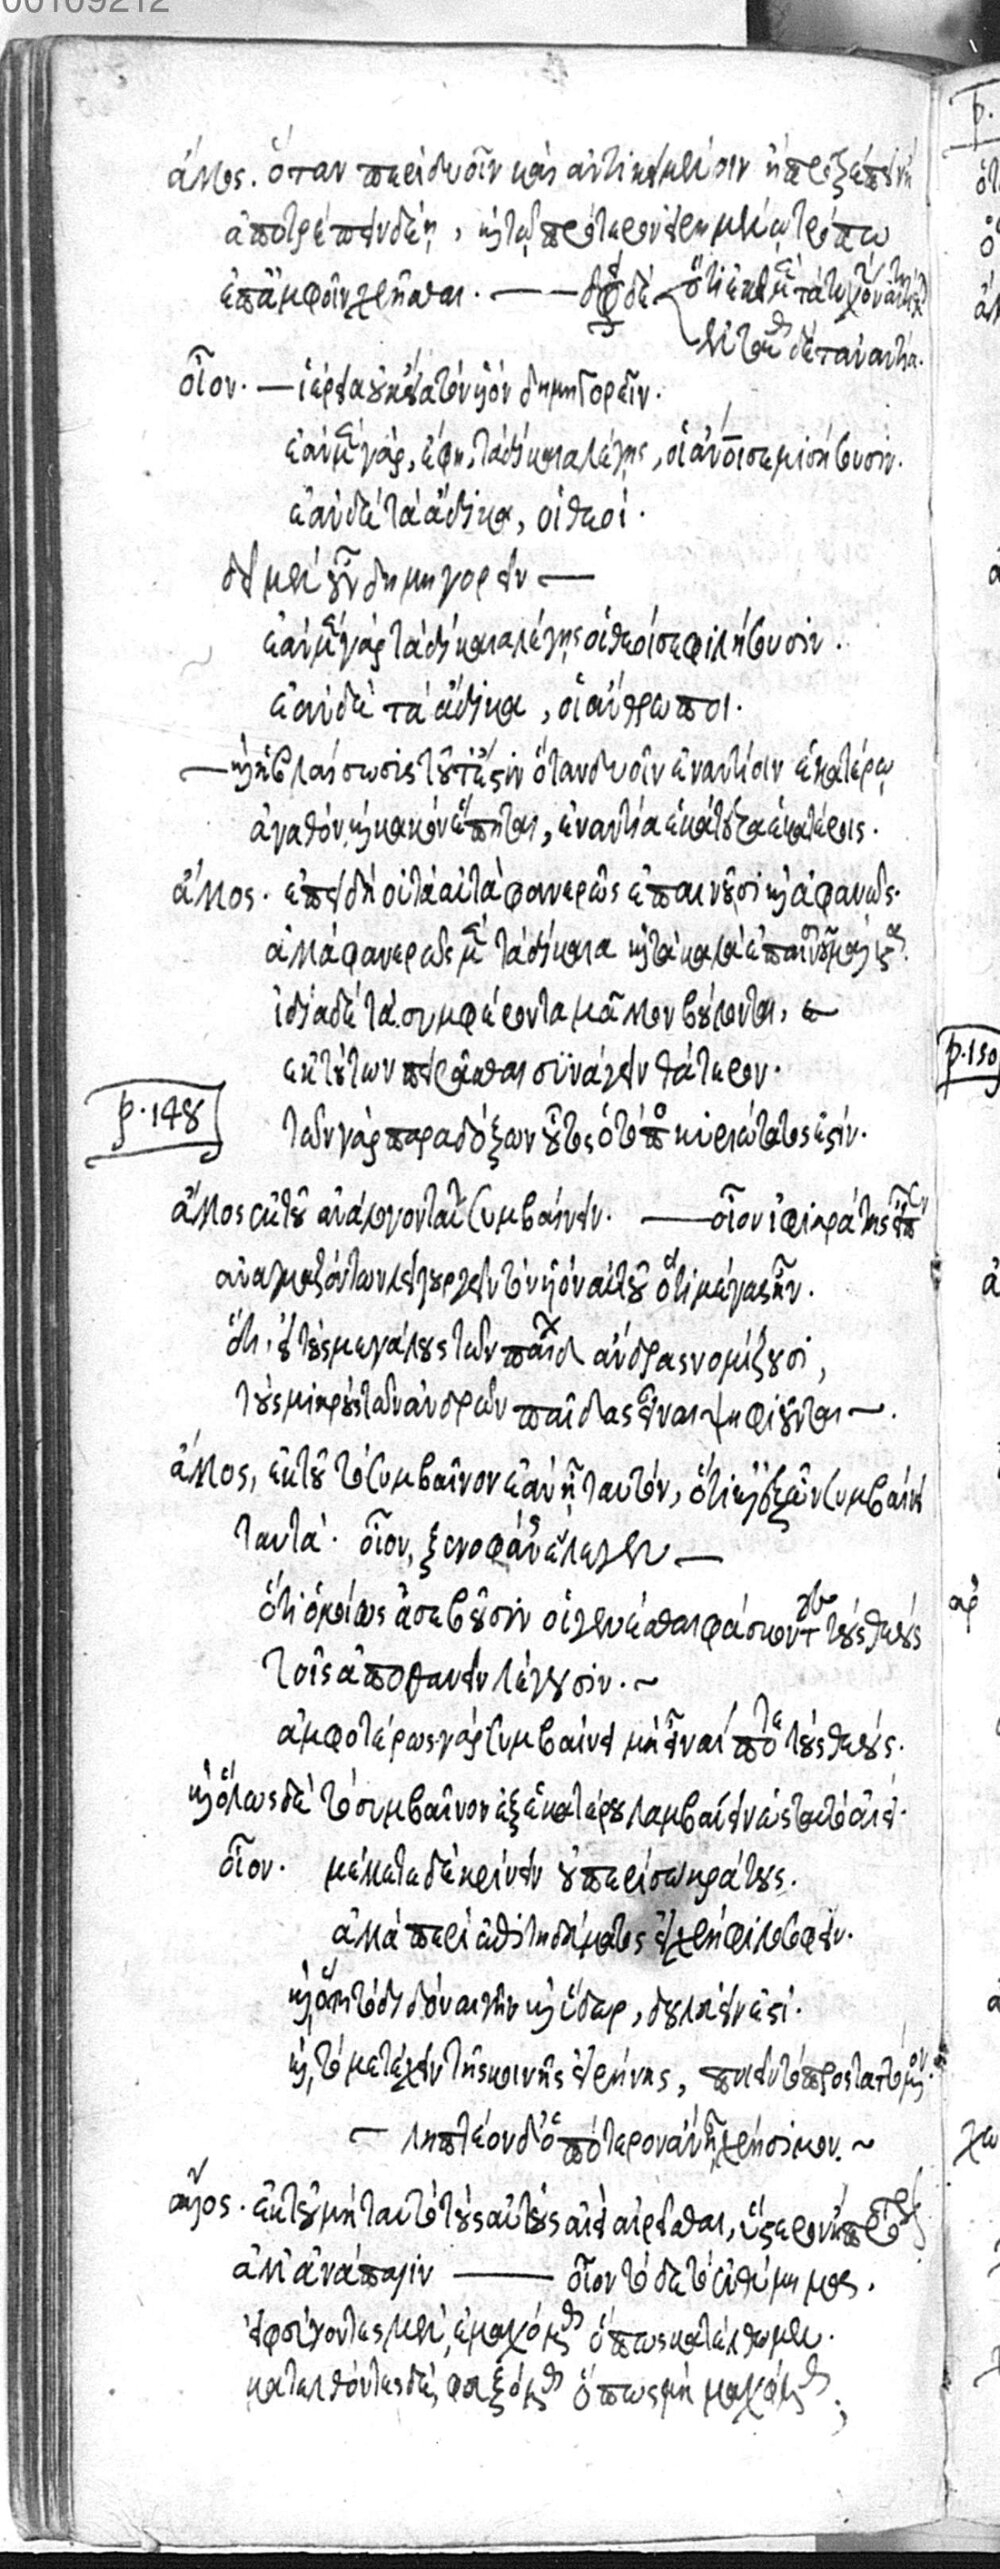 00109212
ἄλλος. ὅταν περὶ δυοῖν καὶ ἀντικειμένοιν ἢ προτρέπειν ἢ
ἀποτρέπειν δέῃ, καὶ τῷ πρότερον εἰρημένῳ τρόπῳ
ἐπ' ἀμφοῖν χρῆσθαι. — ὅτι ἐκεῖ μὲν τὰ τυχόντα
ἐνταῦθα δὲ τἀναντία.
οἷον. — ἱέρεια οὐκ εἴα τὸν υἱὸν δημηγορεῖν.
ἐὰν μὲν γάρ, ἔφη, τὰ δίκαια λέγῃς, οἱ ἄνθρωποί σε μισήσουσιν.
ἐὰν δὲ τὰ ἄδικα, οἱ θεοί.
δεῖ μὲν οὖν δημηγορεῖν —
ἐὰν μὲν γὰρ τὰ δίκαια λέγῃς οἱ θεοί σε φιλήσουσιν.
ἐὰν δὲ τὰ ἄδικα, οἱ ἄνθρωποι.
— καὶ ἡ βλαίσωσις τοῦτ' ἐστὶν ὅταν δυοῖν ἐναντίοιν ἑκατέρῳ
ἀγαθὸν καὶ κακὸν ἕπηται, ἐναντία ἑκάτερα ἑκατέροις.
ἄλλος. ἐπειδὴ οὐ τὰ αὐτὰ φανερῶς ἐπαινοῦσι καὶ ἀφανῶς.
ἀλλὰ φανερῶς μὲν τὰ δίκαια καὶ τὰ καλὰ ἐπαινοῦσι μάλιστα.
ἰδίᾳ δὲ τὰ συμφέροντα μᾶλλον βούλονται,
ἐκ τούτων πειρᾶσθαι συνάγειν θάτερον.
p. 148
τῶν γὰρ παραδόξων οὗτος ὁ τόπος κυριώτατός ἐστιν.
ἄλλος ἐκ τοῦ ἀνάλογον ταῦτα συμβαίνειν. — οἷον ἰφικράτης εἶπεν
ἀναγκαζόντων λειτουργεῖν τὸν υἱὸν αὐτοῦ ὅτι μέγας ἦν.
ὅτι, εἰ τοὺς μεγάλους τῶν παίδων ἄνδρας νομίζουσι,
τοὺς μικροὺς τῶν ἀνδρῶν παῖδας εἶναι ψηφιοῦνται —.
ἄλλος, ἐκ τοῦ τὸ συμβαῖνον ἐὰν ᾖ ταυτόν, ὅτι καὶ ἐξ ὧν συμβαίνει
ταυτά. οἷον, ξενοφάνης ἔλεγεν —
ὅτι ὁμοίως ἀσεβοῦσιν οἱ γενέσθαι φάσκοντες τοὺς θεοὺς
τοῖς ἀποθανεῖν λέγουσιν. ~
ἀμφοτέρως γὰρ συμβαίνει μὴ εἶναί ποτε τοὺς θεούς.
καὶ ὅλως δὲ τὸ συμβαῖνον ἐξ ἑκατέρου λαμβάνειν ὡς ταυτὸ ἀεί.
οἷον. μέλλετε δὲ κρίνειν οὐ περὶ σωκράτους.
ἀλλὰ περὶ ἐπιτηδεύματος εἰ χρὴ φιλοσοφεῖν.
καὶ ὅτι τὸ διδόναι γῆν καὶ ὕδωρ, δουλεύειν ἐστί.
καὶ, τὸ μετέχειν τῆς κοινῆς εἰρήνης, ποιεῖν τὸ προσταττόμενον.
— ληπτέον δ' ὁπότερον ἂν ᾖ χρήσιμον. ~
ἄλλος. ἐκ τοῦ μὴ ταυτὸ τοὺς αὐτοὺς ἀεὶ αἱρεῖσθαι, ὕστερον ἢ πρότερον
ἀλλ' ἀνάπαλιν — οἷον τόδε τὸ ἐνθύμημα.
εἰ φεύγοντες μὲν, ἐμαχόμεθα ὅπως κατέλθωμεν.
κατελθόντες δὲ, φευξόμεθα ὅπως μὴ μαχώμεθα;
p.
p. 150